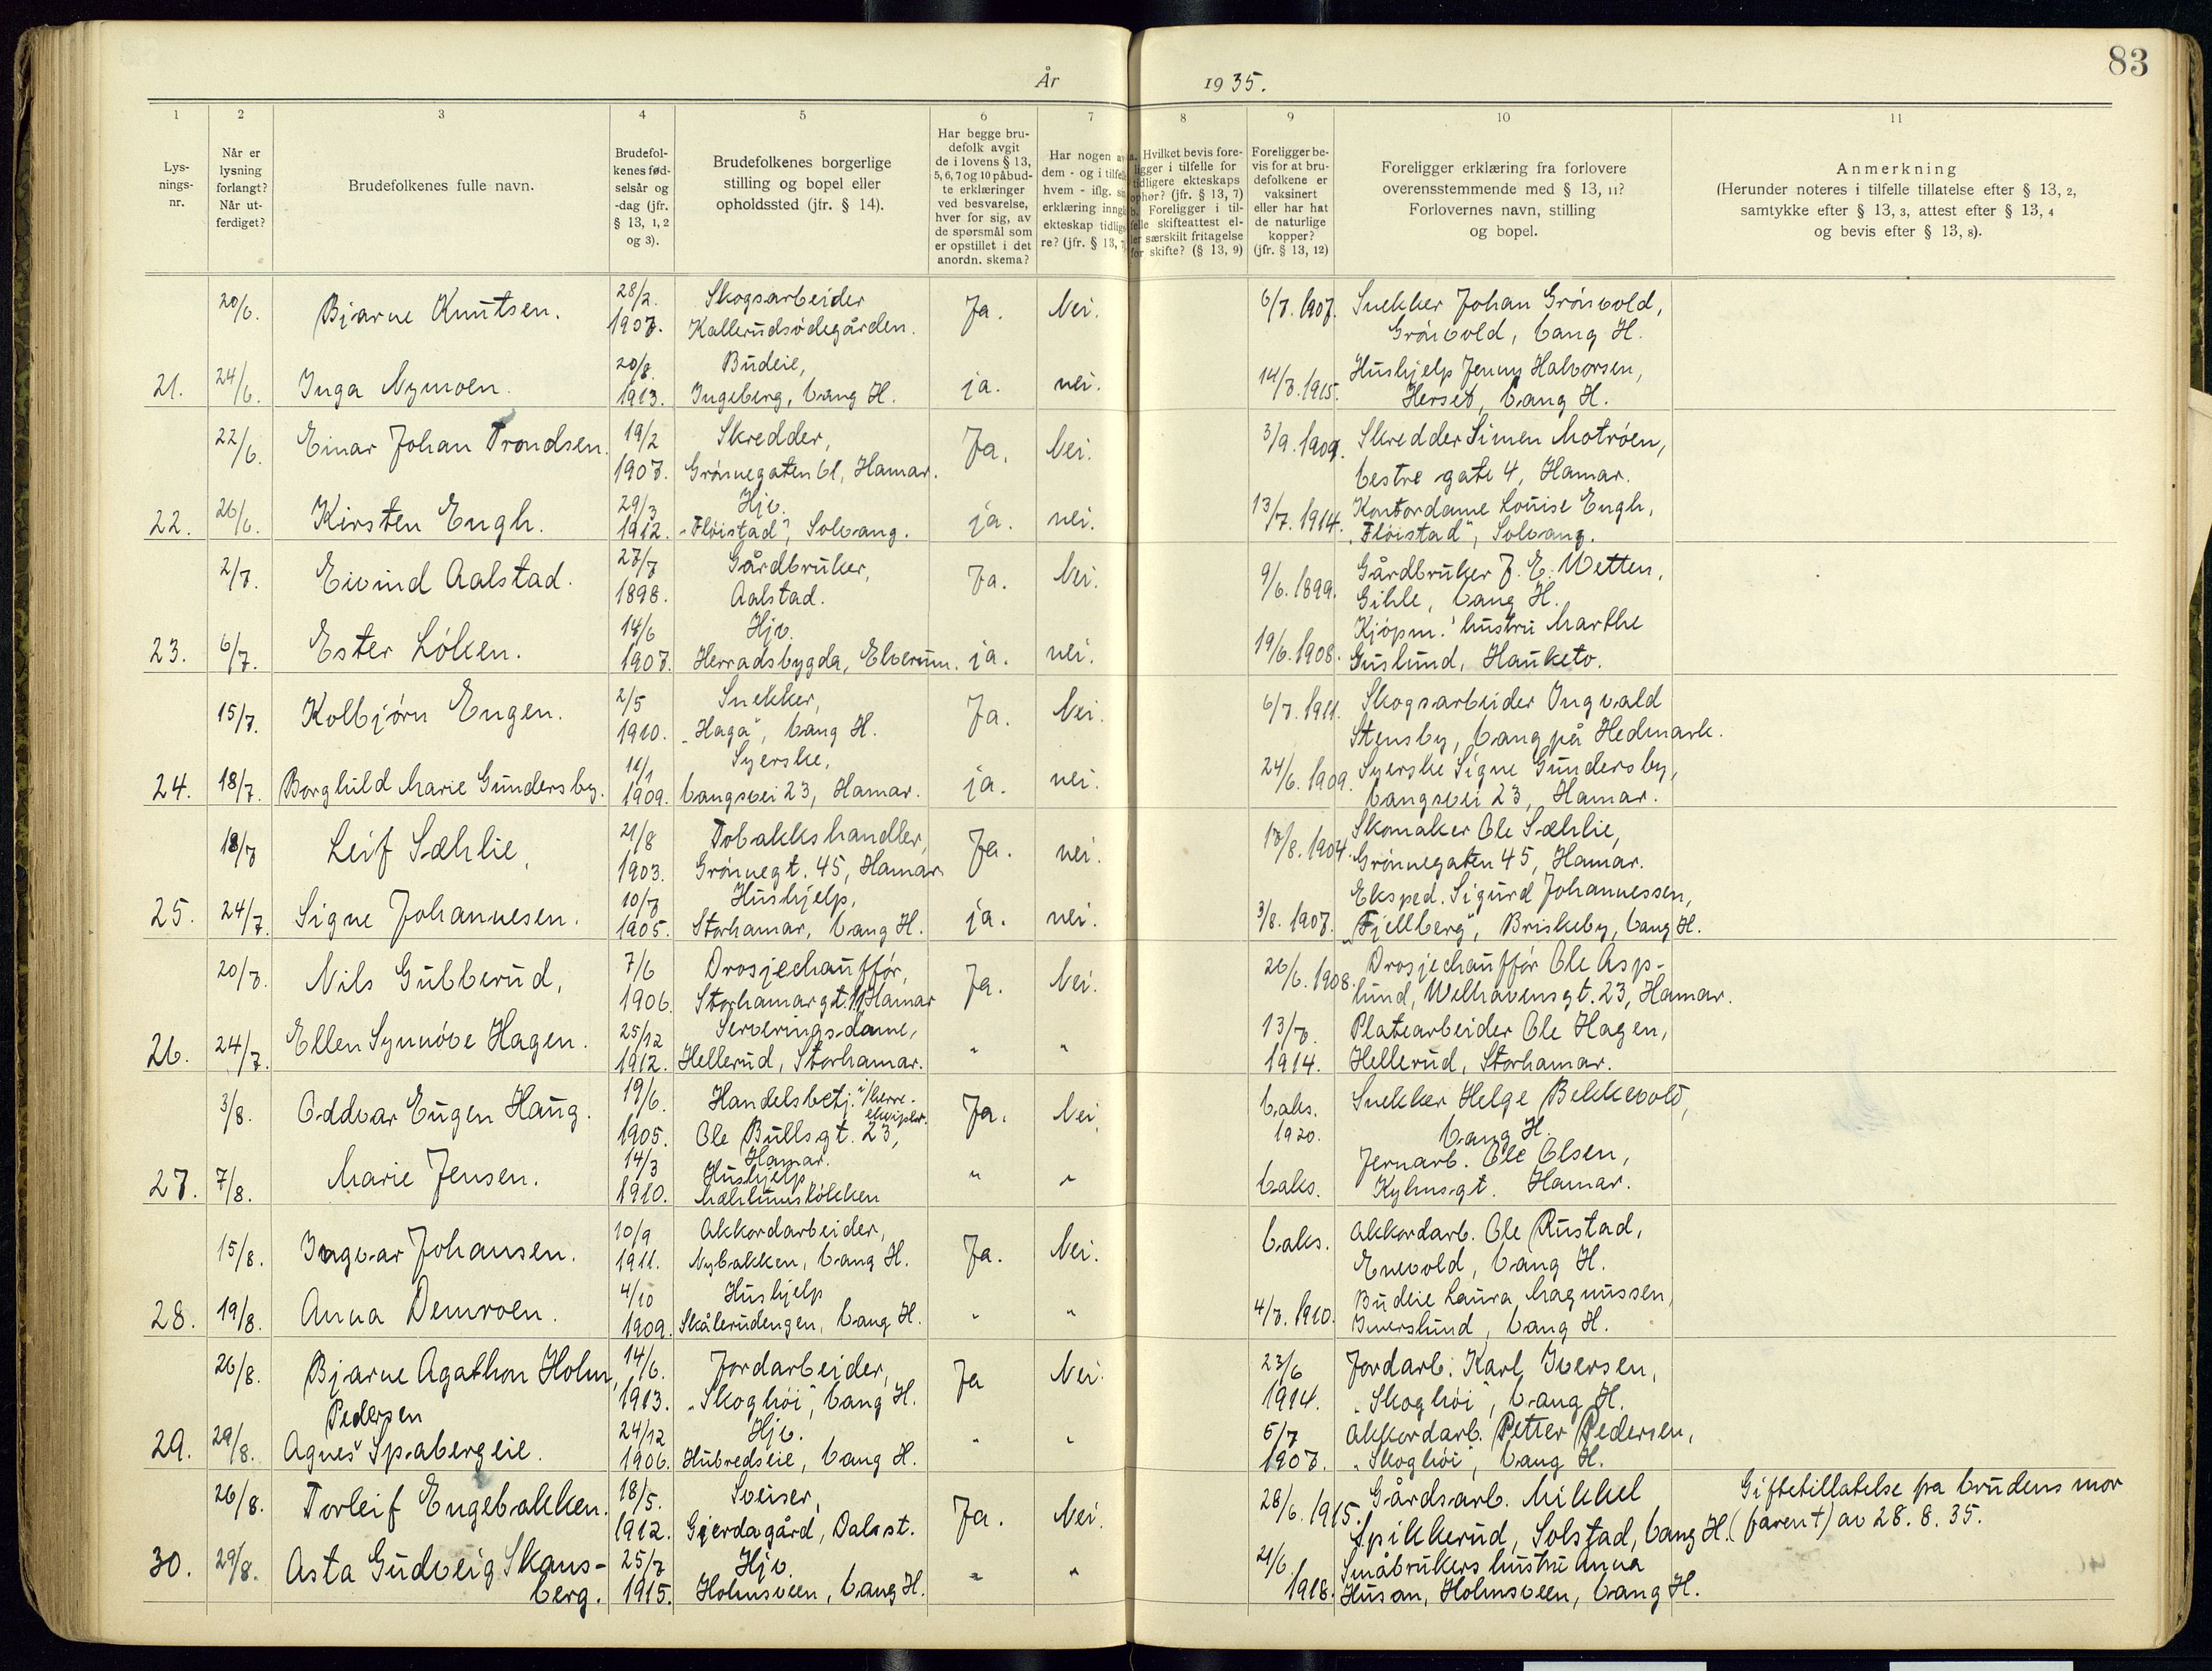 83
År 1935.
1 2 3 4 5 6 7 8 9 10 11
Lys-
nings-
nr.
Når er
lysning
forlangt?
Når ut-
ferdiget?
Brudefolkenes fulle navn.
Brudefol-
kenes fød-
selsår og
-dag (jfr.
§ 13, 1, 2
og 3).
Brudefolkenes borgerlige
stilling og bopel eller
opholdssted (jfr. § 14).
Har begge bru-
defolk avgit
de i lovens § 13,
5, 6, 7 og 10 påbud-
te erklæringer
ved besvarelse,
hver for sig, av
de spørsmål som
er opstillet i det
anordn. skema?
Har nogen av
dem - og i tilfelle
hvem - iflg. sin
erklæring inngåt
ekteskap tidlige-
re? (jfr. § 13, 7)
a. Hvilket bevis fore-
ligger i tilfelle for
tidligere ekteskaps
ophør? (jfr. § 13, 7)
b. Foreligger i til-
felle skifteattest el-
ler særskilt fritagelse
for skifte? (§ 13, 9)
Foreligger be-
vis for at bru-
defolkene er
vaksinert
eller har hat
de naturlige
kopper?
(jfr. § 13, 12)
Foreligger erklæring fra forlovere
overensstemmende med § 13, 11?
Forlovernes navn, stilling
og bopel.
Anmerkning
(Herunder noteres i tilfelle tillatelse efter § 13, 2,
samtykke efter § 13, 3, attest efter § 13, 4
og bevis efter § 13, 8).
20/6. Bjarne Knutsen. 28/2. 1907. Skogsarbeider Ja. Nei. 6/7. 1907. Snekker Johan Grönvold,
Kallerudsødegården. Grönvold, Vang H.
21. 24/6. Inga Nymoen. 20/8. 1913. Budeie, ja. nei. 14/7. 1915. Hushjelp Jenny Halvorsen,
Ingeberg, Vang H. Herset, Vang H.
22/6. Einar Johan Trondsen. 19/2 1907. Skredder, Ja. Nei. 3/9. 1909. Skredder Simen Motröen,
Grönnegaten 61, Hamar. Vestre gate 4, Hamar.
22. 26/6. Kirsten Engh. 29/3 1912. Hjv. ja. nei. 13/7. 1914. Kontordame Louise Engh,
„Flöistad", Solvang. „Flöistad", Solvang.
2/7. Eivind Aalstad. 27/7 1898. Gårdbruker, Ja. Nei. 9/6. 1899. Gårdbruker J. E. Wetten,
Aalstad. Gihle, Vang H.
23. 6/7. Ester Löken. 14/6 1907. Hjv. ja. nei. 19/6. 1908. Kjöpm. hustru Marthe
Herradsbygda, Elverum. Guslund, Hauketo.
15/7. Kolbjörn Engen. 2/5 1910. Snekker, Ja. Nei. 6/7. 1911. Skogsarbeider Ingvald
„Haga", Vang H. Stensby, Vang på Hedmark.
24. 18/7. Borghild Marie Gundersby. 11/1 1909. Syerske, ja. nei. 24/6. 1909. Syerske Signe Gundersby,
Vangsvei 23, Hamar. Vangsvei 23, Hamar.
18/7 Leif Sæhlie, 21/8 1903. Tobakkshandler, Ja. nei. 17/8. 1904. Skomaker Ole Sæhlie,
Grönnegt. 45, Hamar. Grönnegaten 45, Hamar.
25. 24/7. Signe Johannesen. 10/7 1905. Hushjelp, ja. nei. 3/8. 1907. Eksped. Sigurd Johannessen,
Storhamar, Vang H. „Fjellberg", Briskeby, Vang H.
20/7. Nils Gubberud, 7/6 1906. Drosjechaufför, Ja. Nei. 26/6. 1908. Drosjechaufför Ole Asp-
Storhamargt. 11 Hamar lund, Welhavensgt. 23, Hamar.
26. 24/7. Ellen Synnöve Hagen. 25/12 1912. Serveringsdame, " " 13/7. 1914. Platearbeider Ole Hagen,
Hellerud, Storhamar. Hellerud, Storhamar.
3/8. Oddvar Eugen Haug. 19/6. 1905. Handelsbetj. i herre- Ja. Nei. Vaks. 1920. Snekker Helge Bekkevold,
ekviper.
Ole Bullsgt. 23, Vang H.
Hamar.
27. 7/8. Marie Jensen. 14/3 1910. Hushjelp " " Vaks. Jernarb. Ole Olsen,
Mæhlumslökken Kyhnsgt. Hamar.
15/8. Ingvar Johansen. 10/9 1911. Akkordarbeider, Ja. Nei. Vaks. Akkordarb. Ole Rustad,
Nybakken, Vang H. Enevold, Vang H.
28. 19/8. Anna Demroen. 4/10 1909. Hushjelp " " 4/7. 1910. Budeie Laura Magnussen,
Skålerudengen, Vang H. Iverslund, Vang H.
26/8. Bjarne Agathon Holm 14/6. 1913. Jordarbeider, Ja Nei. 23/6 1914. Jordarb. Karl Iversen,
Pedersen „Skoghöi", Vang H. „Skoghöi", Vang H.
29. 29/8. Agnes Spabergeie. 24/12 1906. Hjv. " " 5/7 1907. Akkordarb. Petter Pedersen,
Hubredseie, Vang H. „Skoghöi", Vang H.
26/8. Torleif Engebakken. 18/5. 1912. Sveiser, Ja. Nei. 28/6. 1915. Gårdsarb. Mikkel Giftetillatelse fra brudens mor
Gjerdagård, Dal st. Spikkerud, Solstad, Vang H. (farent) av 28. 8. 35.
30. 29/8. Asta Gudveig Skaus- 25/7 1915. Hjv. " " 21/6. 1918. Småbrukers hustru Anna
berg. Holmsveen, Vang H. Husan, Holmsveen, Vang H.